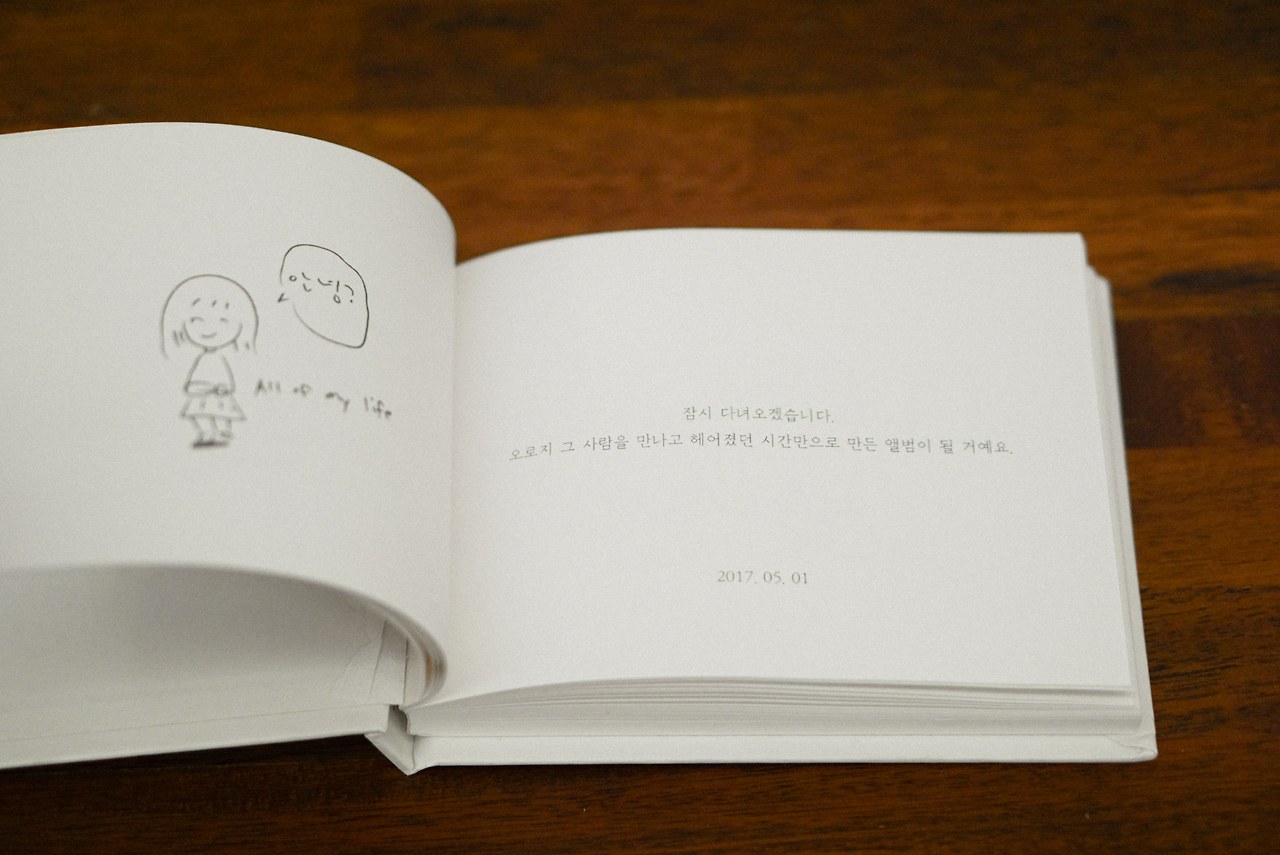 안녕?
All of my life
잠시 다녀오겠습니다.
오로지 그 사람을 만나고 헤어졌던 시간만으로 만든 앨범이 될 거예요.
2017. 05. 01